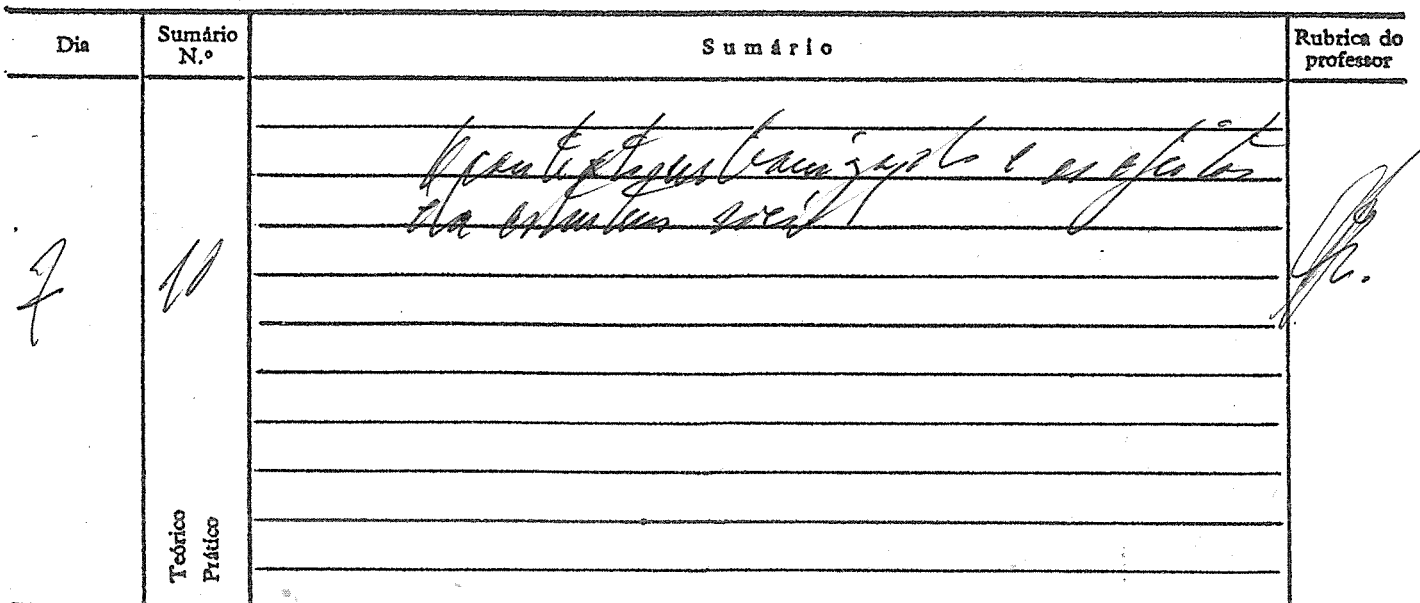 Dia
Sumário N.º
Sumário
Rubrica do professor
e os efeitos
na estrutura social
7
10
Teórico
Prático